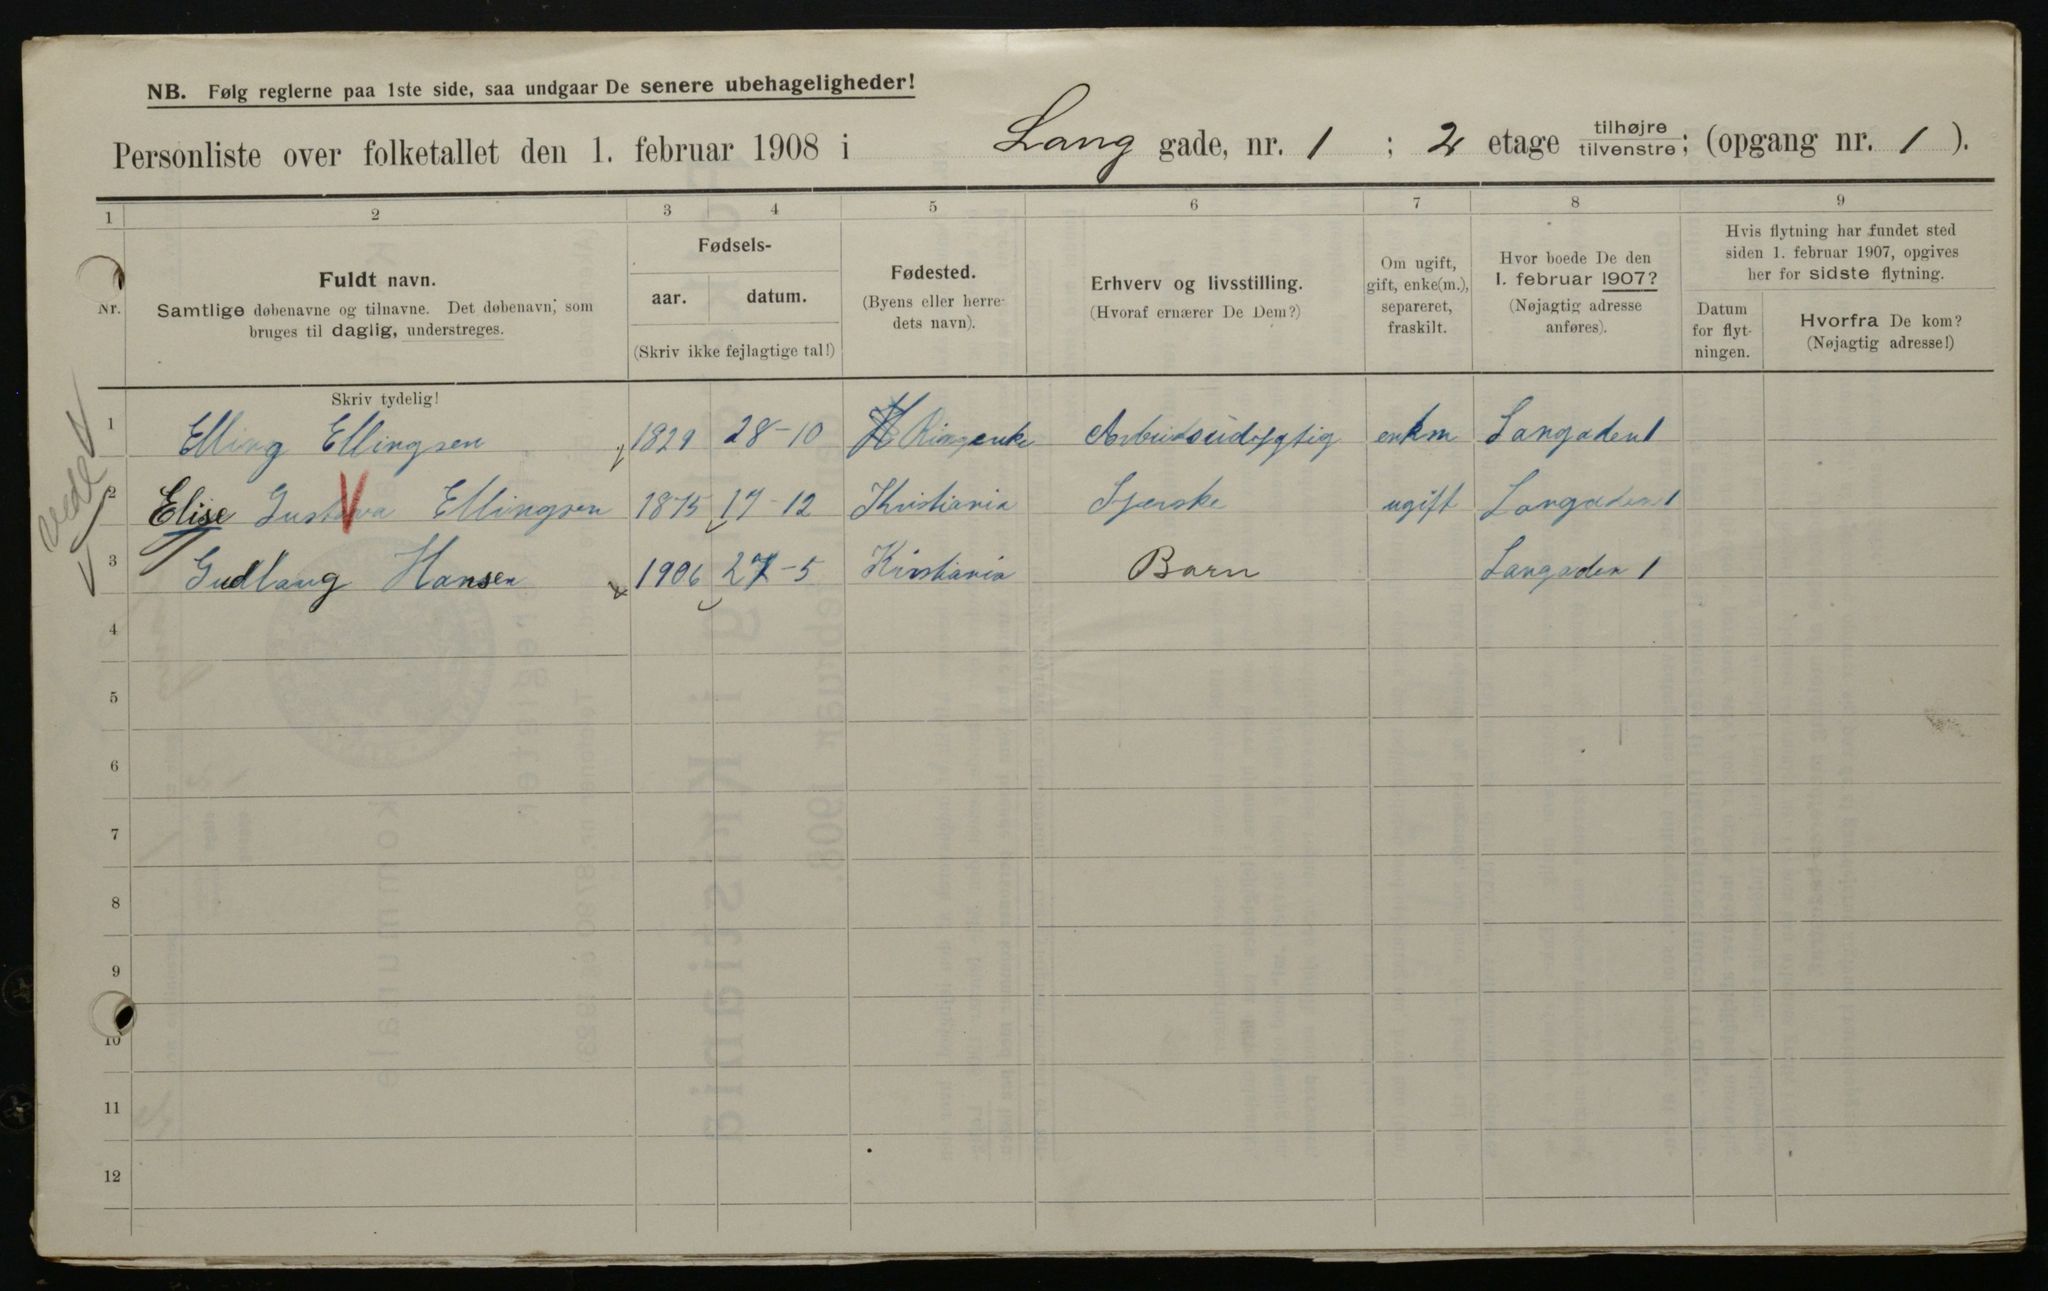 NB. Følg reglerne paa 1ste side, saa undgaar De senere ubehageligheder!
Personliste over folketallet den 1. februar 1908 i Lang gade, nr. 1 ; 2 etage tilhøjre tilvenstre; (opgang nr. 1 ).
1 2 3 4 5 6 7 8 9
Nr.
Fuldt navn.
Samtlige døbenavne og tilnavne. Det døbenavn, som
bruges til daglig, understreges.
Fødsels-
aar. datum.
(Skriv ikke fejlagtige tal!)
Fødested.
(Byens eller herre-
dets navn).
Erhverv og livsstilling.
(Hvoraf ernærer De Dem?)
Om ugift,
gift, enke(m.),
separeret,
fraskilt.
Hvor boede De den
1. februar 1907?
(Nøjagtig adresse
anføres).
Hvis flytning har fundet sted
siden 1. februar 1907, opgives
her for sidste flytning.
Datum
for flyt-
ningen.
Hvorfra De kom?
(Nøjagtig adresse!)
Skriv tydelig!
1 Elling Ellingsen 1829 28-10 enkm Langaden 1
2 Elise Gustava Ellingsen 1875 17-12 Kristiania ugift Langaden 1
3 Gudlaug Hansen 1906 27-5 Kristiania Barn Langaden 1
4
5
6
7
8
9
10
11
12